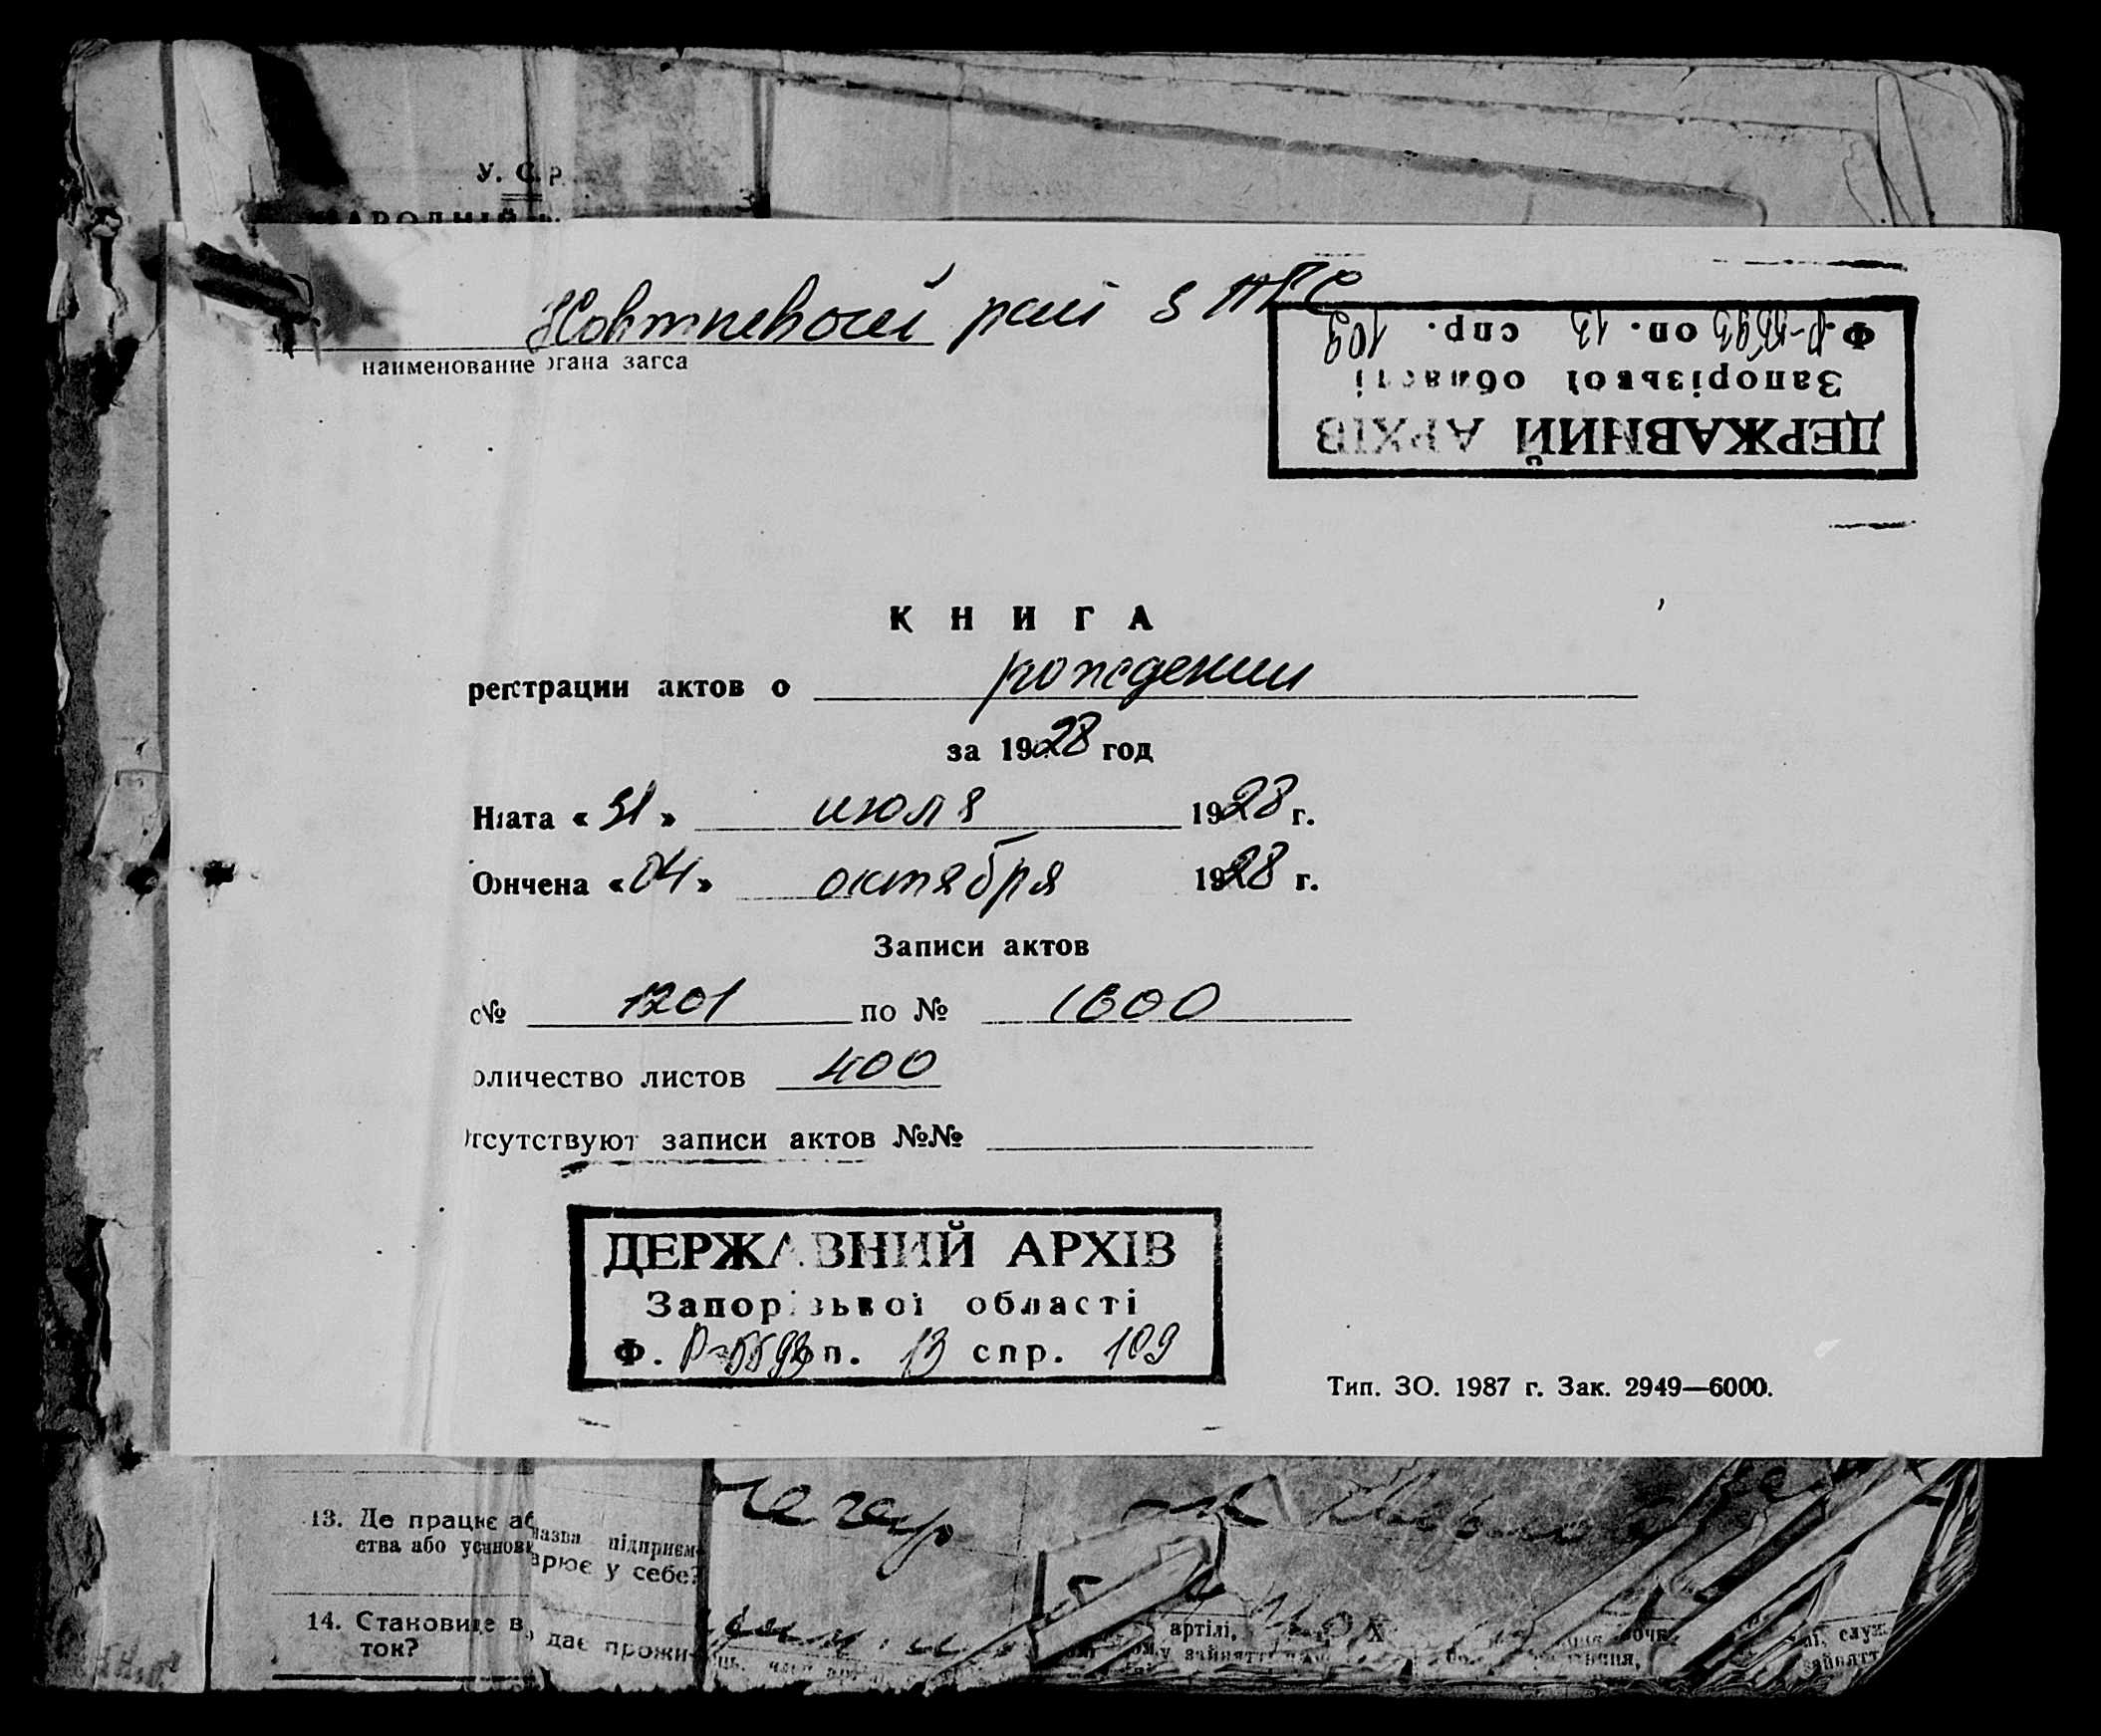 У. С. Р
АРОДНІЙ
Жовтневый рай ЗАГС
наименование органа загса
Ф. Р-5593 оп. 13 спр. 109
Запорізької області
ДЕРЖАВНИЙ АРХІВ
КНИГА
регстрации актов о рождении
за 1928 год
Начата «31» июля 1928 г.
Окончена «04» октября 1928 г.
Записи актов
с № 1201 по № 1600
оличество листов 400
тсутствуют записи актов №№
ДЕРЖАВНИЙ АРХІВ
Запорізької області
Ф. Р-5593 оп. 13 спр. 109
Тип. ЗО. 1987 г. Зак. 2949—6000.
13. Де працює аб
назва підприєм-
ства або установ
арює у себе?
14. Становище в
дає прожи-
ток?
артілі,